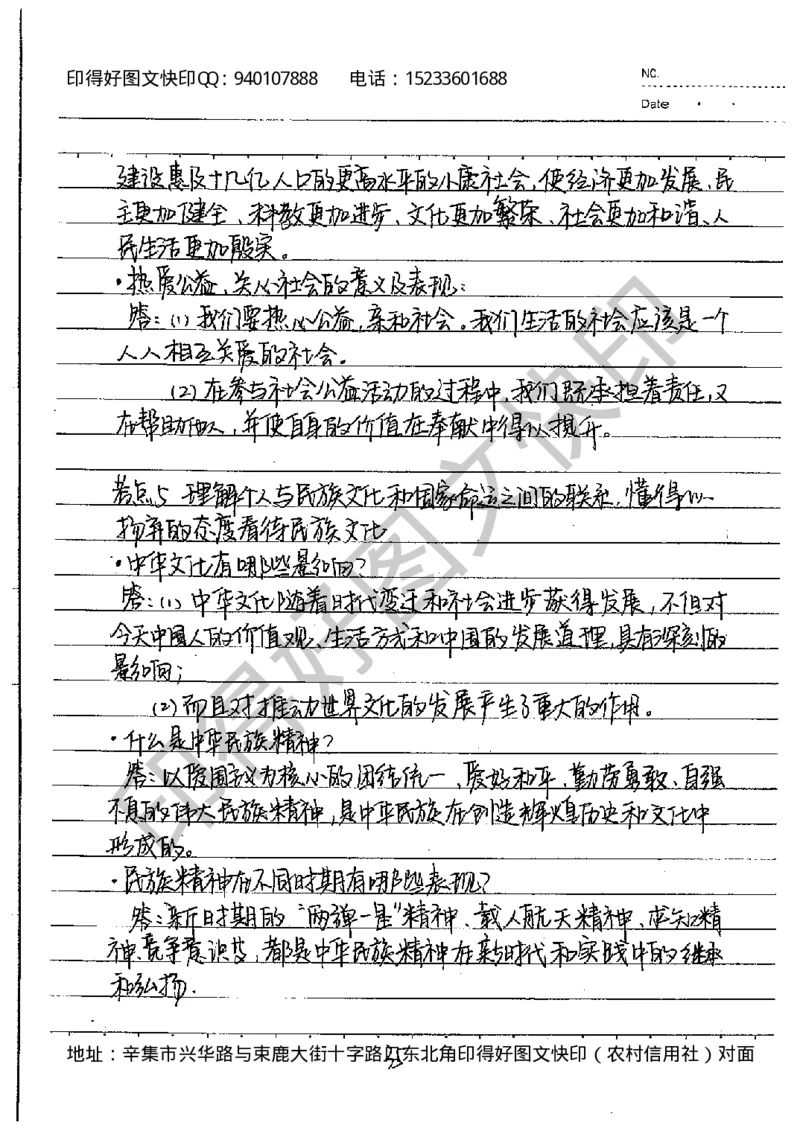 印得好图文快印QQ：940107888 电话：15233601688
NO.
Date
建设惠及十几亿人口的更高水平的小康社会，使经济更加发展、民
主更加健全、科教更加进步、文化更加繁荣、社会更加和谐、人
民生活更加殷实。
·热爱公益，关心社会的意义及表现：
答：(1)我们要热心公益，亲和社会。我们生活的社会应该是一个
人人相互关爱的社会。
(2)在参与社会公益活动的过程中，我们既承担着责任，又
在帮助他人，并使自身的价值在奉献中得以提升。
考点5 理解个人与民族文化和国家命运之间的联系，懂得以
扬弃的态度看待民族文化
·中华文化有哪些影响？
答：(1)中华文化随着时代变迁和社会进步获得发展，不但对
今天中国人的价值观、生活方式和中国的发展道理，具有深刻的
影响；
(2)而且对推动世界文化的发展产生了重大的作用。
·什么是中华民族精神？
答：以爱国主义为核心的团结统一、爱好和平、勤劳勇敢、自强
不息的伟大民族精神，是中华民族在创造辉煌历史和文化中
形成的。
·民族精神在不同时期有哪些表现？
答：新时期的“两弹一星”精神、载人航天精神、求知精
神、竞争意识等，都是中华民族精神在新时代和实践中的继承
和弘扬.
地址：辛集市兴华路与束鹿大街十字路口东北角印得好图文快印（农村信用社）对面
印得好图文快印